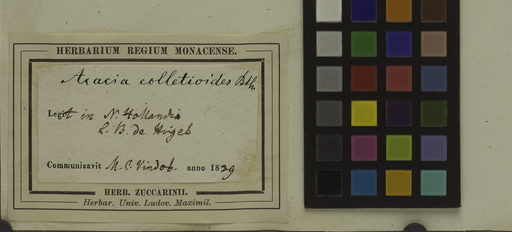 HERBARIUM REGIUM MONACENSE.
Acacia colletioides Bth.
Legit in N. Hollandia
L. B. de Hügel
Communicavit M. C. Vindob. anno 1839
HERB. ZUCCARINII.
Herbar. Univ. Ludov. Maximil.